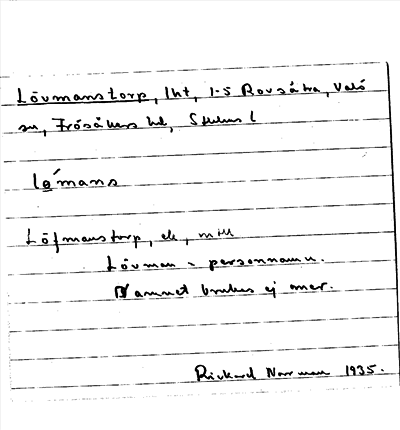 Lövmanstorp, lht, 1-5 Rovsätra, Valö
sn, Frösåkers hd, Sthms l
lo´mans
Löfmanstorp, ek,
Lövman = personnamn.
Namnet brukas ej mer.
Rickard Norman 1935.